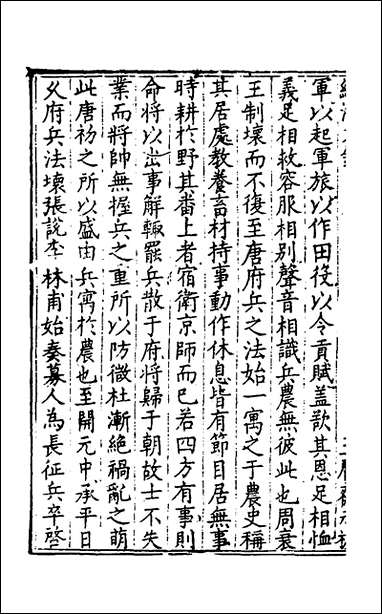 軍以起軍旅以作田役以令貢賦蓋欲其恩足相恤
義足相救容服相別聲音相識兵農無彼此也周衰
王制壞而不復至唐府兵之法始一寓之于農史稱
其居處教養畜材持事動作休息皆有節目居無事
時耕於野其番上者宿衛京師而已若四方有事則
命將以出事解輒罷兵散于府將歸于朝故士不失
業而將帥無握兵之重所以防微杜漸絕禍亂之萌
此唐初之所以盛由兵寓於農也至開元中承平日
乆府兵法壞張說李林甫始奏募人為長征兵卒啓